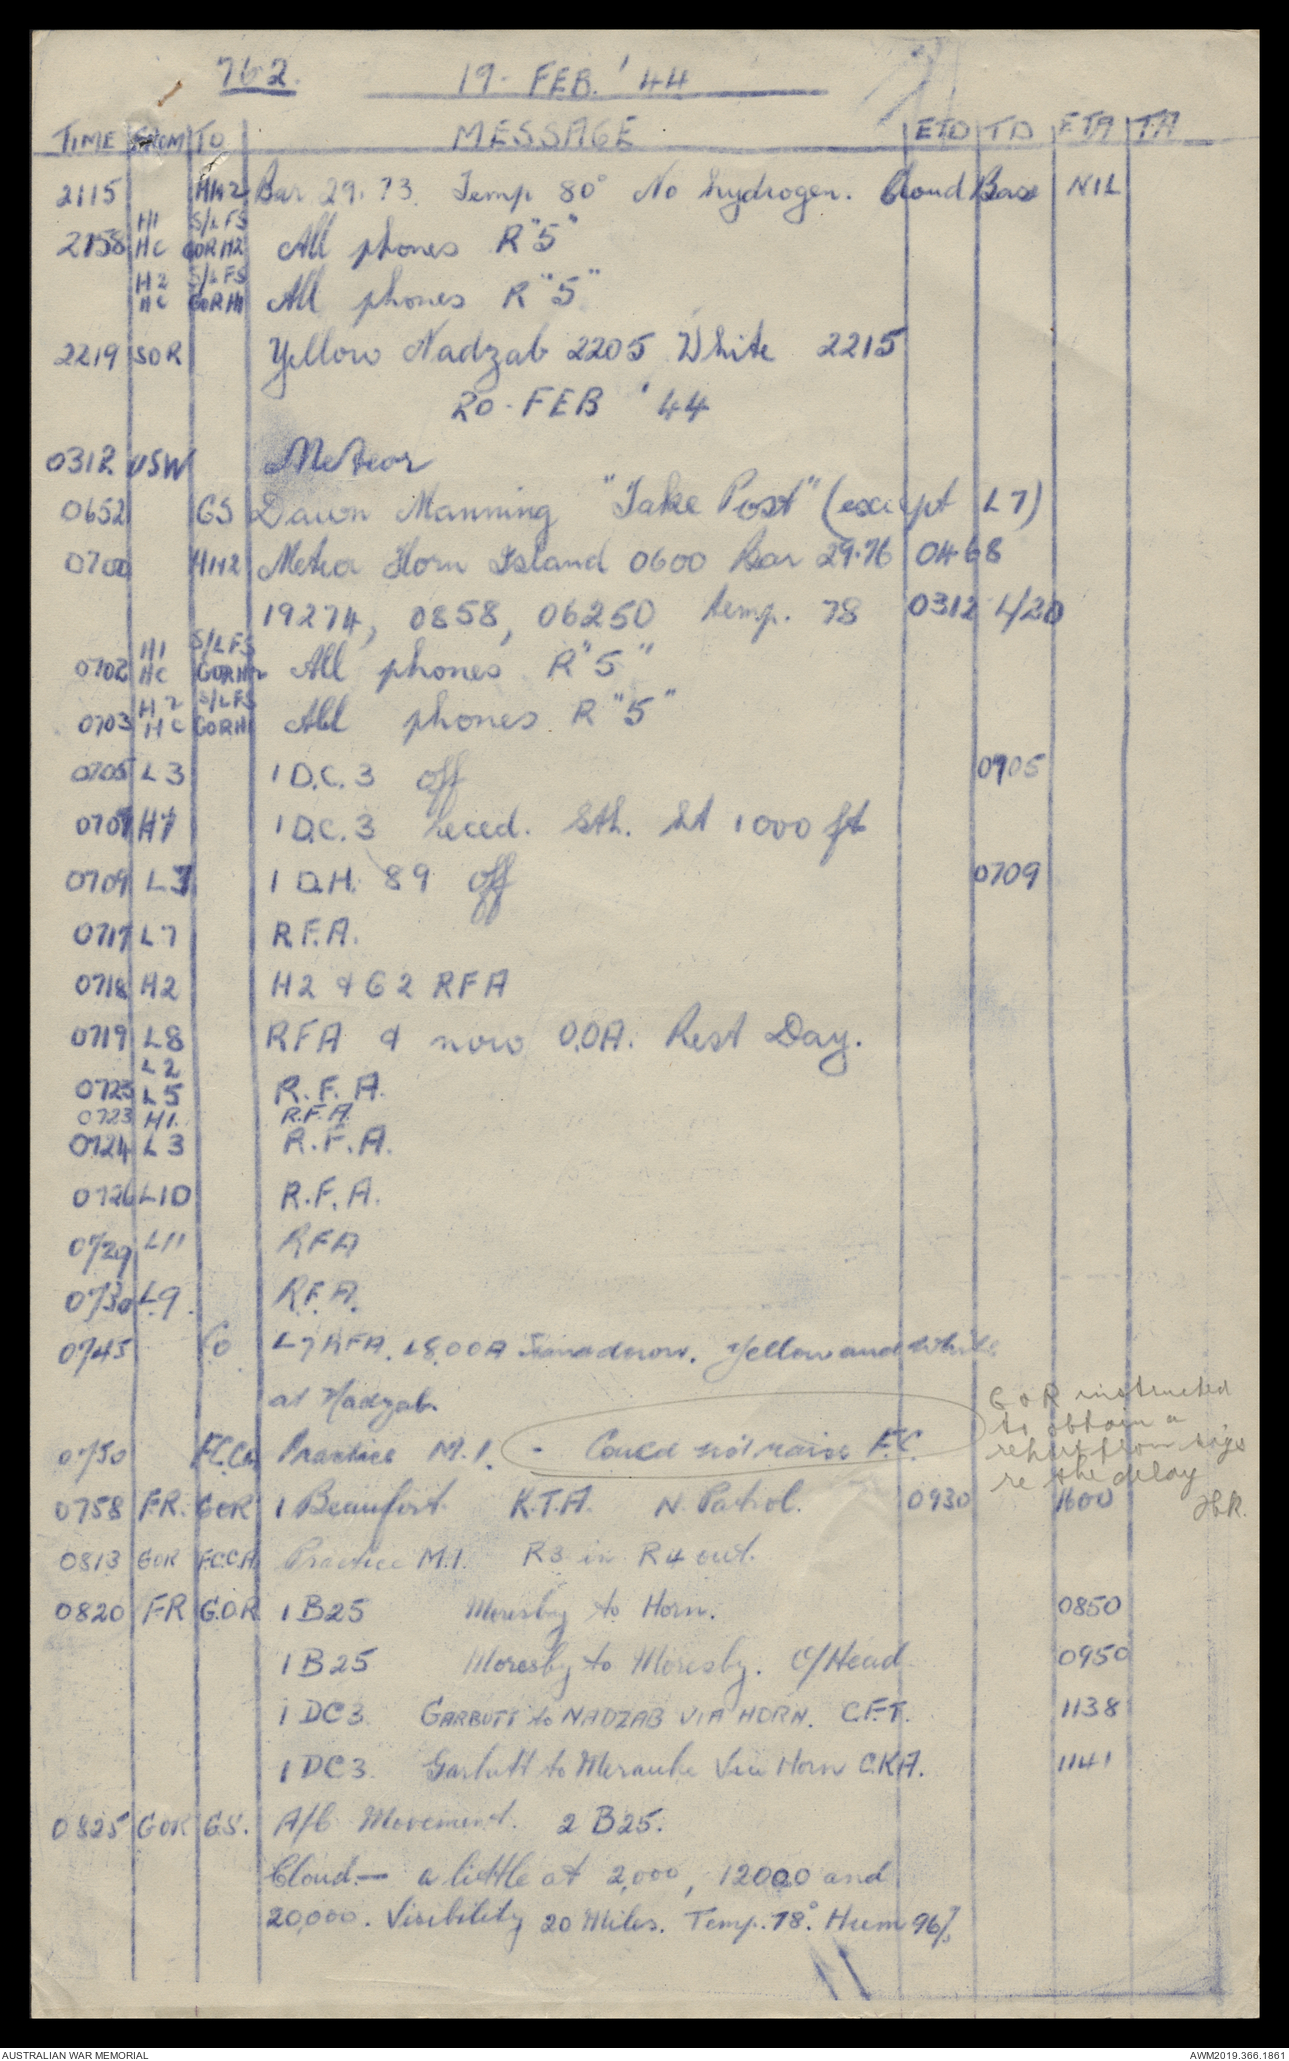 762.
19 - FEB. '44
TIME FROM TO MESSAGE ETD TD ETA TA
2115 H1H2 Bar 29.73. Temp 80° No hydrogen. Cloud Base NIL
H1 S/LFS
2158 HC GOR H2 All phones R "5"
H2 S/LFS
HC GOR H1 All phones R "5"
2219 SOR Yellow Nadzab 2205 White 2215
20 - FEB '44
0312 VSW Meteor
0652 GS Dawn Manning "Take Post" (except L7)
0700 H1H2 Meteor Horn Island 0600 Bar 29.76 0468
19274, 0858, 06250 temp. 78 0312 4/20
H1 S/LFS
0702 HC GORH2 All phones R "5"
H2 S/LFS
0703 HC GORH1 All phones R "5"
0705 L3 1 D.C. 3 off 0705
0707 H7 1 D.C. 3 heced. Sth. ht 1000 ft
0709 L3 1 D.H. 89 off 0709
0717 L7 R.F.A.
0718 H2 H2 & G2 RFA
0719 L8 RFA & now O.O.A. Rest Day.
L2
0723 L5 R.F.A.
0723 H1. R.F.A.
0724 L3 R.F.A.
0726 L10 R.F.A.
0729 L11 RFA
0730 L9. R.F.A.
0745 Co L7 RFA. L8.OOA. Yellow and White
at Nadzab.
0750 F.C.Ca Practice M.1. - Could not raise F.C.
GOR instructed
to obtain a
report from sigs
re the delay
0758 F.R. GOR 1 Beaufort K.T.A. N. Patrol. 0930 1600
0813 GOR F.C.C.A. Practice M.1. R3 in R4 out.
0820 F.R G.O.R 1 B25 Moresby to Horn. 0850
1 B25 Moresby to Moresby. C/Head 0950
1 DC3. GARBUTT to NADZAB VIA HORN. C.F.T. 1138
1 DC3. Garbutt to Merauke Via Horn C.K.A. 1141
0825 GOR G.S. A/C Movement. 2 B25.
Cloud.- a little at 2,000, 12000 and
20,000. Visibility 20 Miles. Temp. 78°. Hum 96%.
AUSTRALIAN WAR MEMORIAL
AWM2019.366.1861